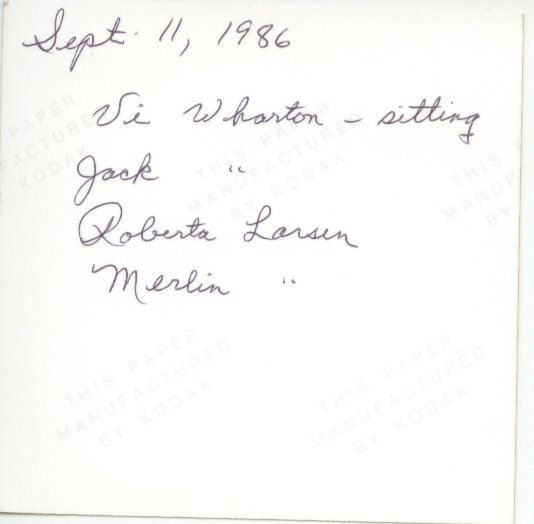 Sept. 11, 1986
Vi Wharton - sitting
Jack "
Roberta Larsen
Merlin "
THIS PAPER
MANUFACTURED
BY KODAK
THIS PAPER
MANUFACTURED
BY KODAK
THIS
MANUF
BY
THIS PAPER
MANUFACTURED
BY KODAK
THIS PAPER
MANUFACTURED
BY KODAK